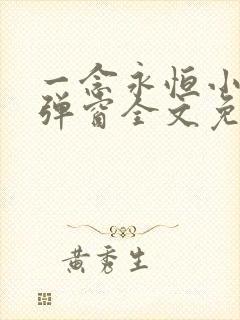 一念永恒小
弹窗全文免
黄秀生